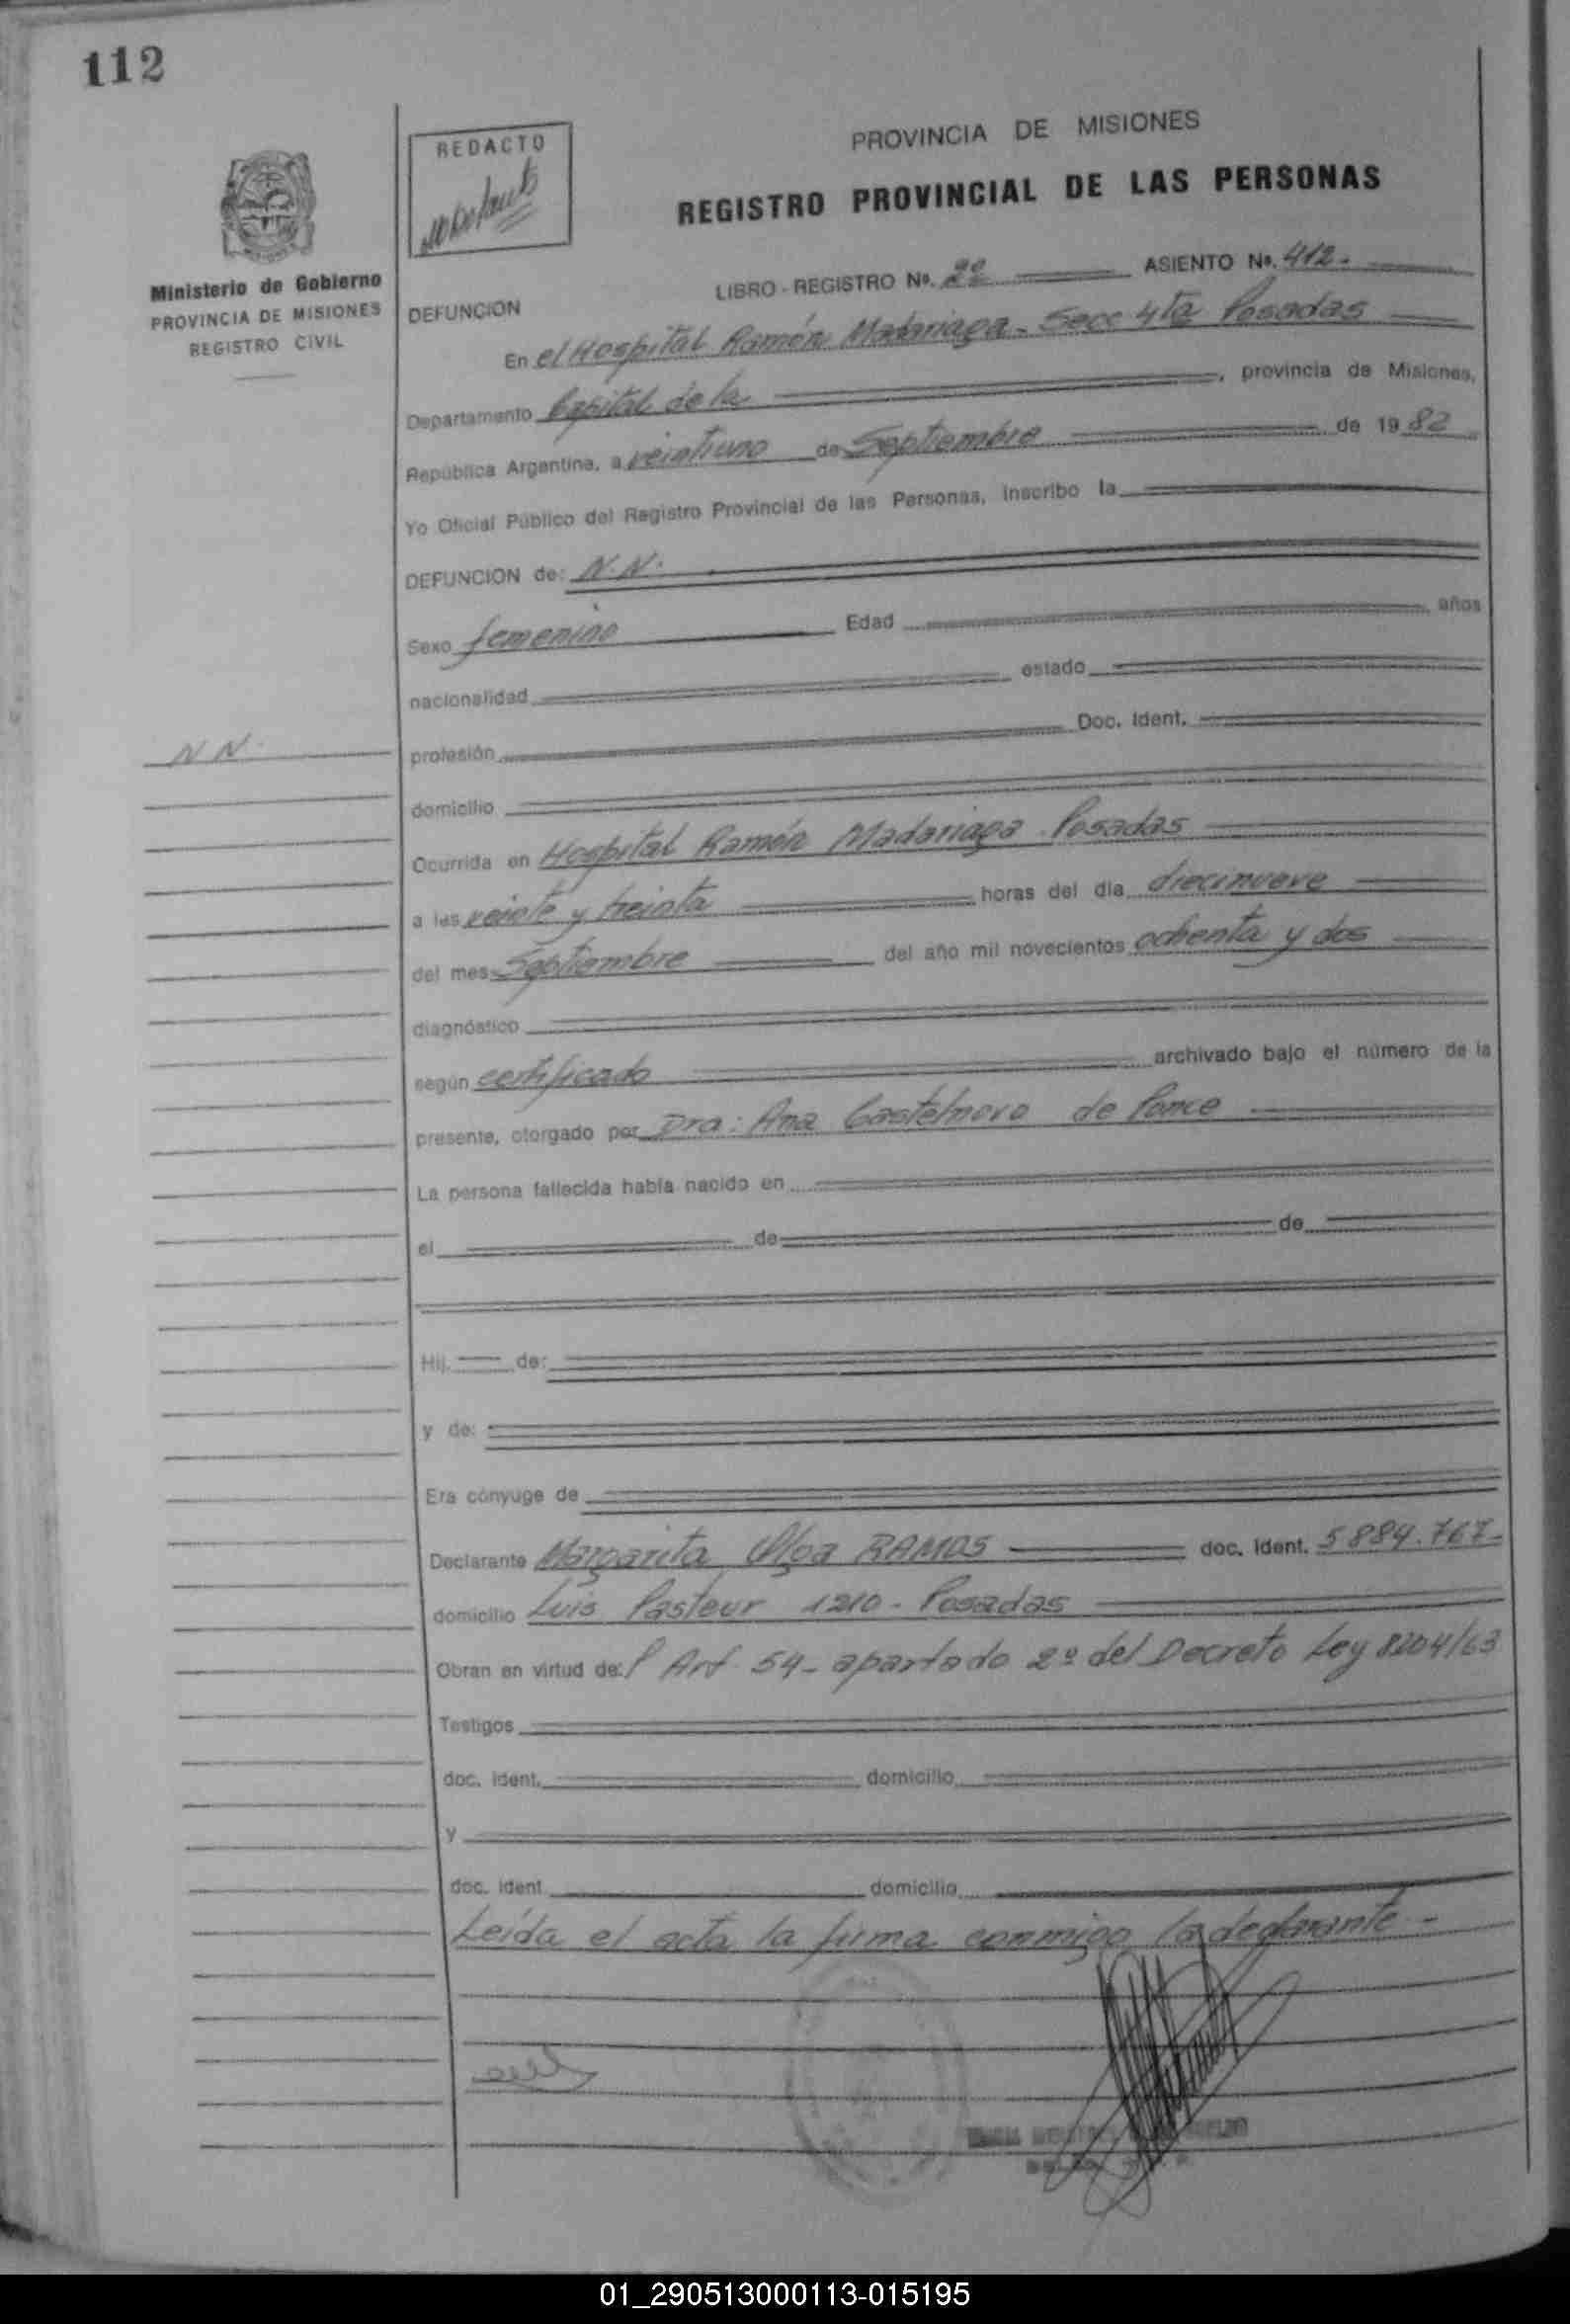 112
REDACTO
PROVINCIA DE MISIONES
REGISTRO PROVINCIAL DE LAS PERSONAS
Ministerio de Gobierno
PROVINCIA DE MISIONES
REGISTRO CIVIL
LIBRO - REGISTRO Nº. 2º ASIENTO Nº. 412.-
DEFUNCION
En el Hospital Ramón Madariaga - Secc 4ta Posadas
Departamento Capital de la , provincia de Misiones,
República Argentina, a veintiuno de Septiembre de 1982
Yo Oficial Público del Registro Provincial de las Personas, inscribo la
DEFUNCION de: N.N.
Sexo femenino Edad años
nacionalidad estado
N N.
profesión Doc. Ident.
domicilio
Ocurrida en Hospital Ramón Madariaga - Posadas
a las veinte y treinta horas del día diecinueve
del mes Septiembre del año mil novecientos ochenta y dos
diagnóstico
según certificado archivado bajo el número de la
presente, otorgado por Dra: Ana Castelnovo de Ponce
La persona fallecida había nacido en
el de de
Hij. de:
y de:
Era cónyuge de
Declarante Margarita Olga RAMOS doc. Ident. 5884.767-
domicilio Luis Pasteur 1210 - Posadas
Obran en virtud de: l Art. 54 - apartado 2º del Decreto Ley 8204/63
Testigos
doc. ident. domicilio
y
doc. ident domicilio
Leída el acta la firma conmigo la declarante -
01_290513000113-015195